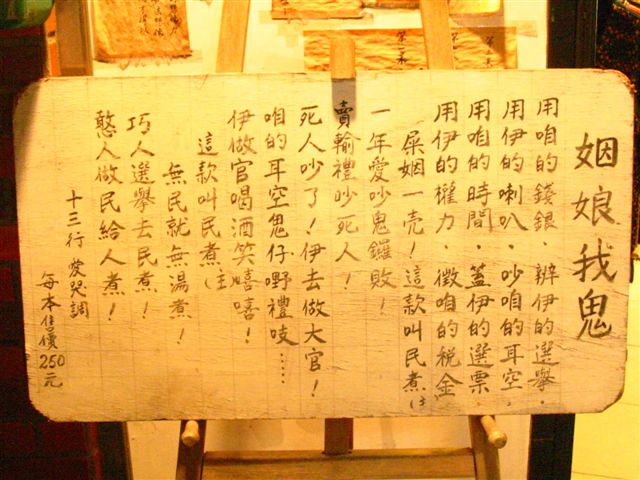 姻娘我鬼
用咱的錢銀．辦伊的選舉．
用伊的喇叭．吵咱的耳空．
用咱的時間．蓋伊的選票
用伊的權力．徵咱的税金
屎姻一売！這款叫民煮(主
一年愛吵鬼鑼敗！
賣輸禮吵死人！
死人吵了！伊去做大官！
咱的耳空鬼仔嘢禮吱‥‥
伊做官喝酒笑嘻嘻！
這款叫民煮(主
無民就無湯煮！
巧人選舉去民煮！
憨人做民給人煮！
十三行 愛哭調
每本售價250元
第一